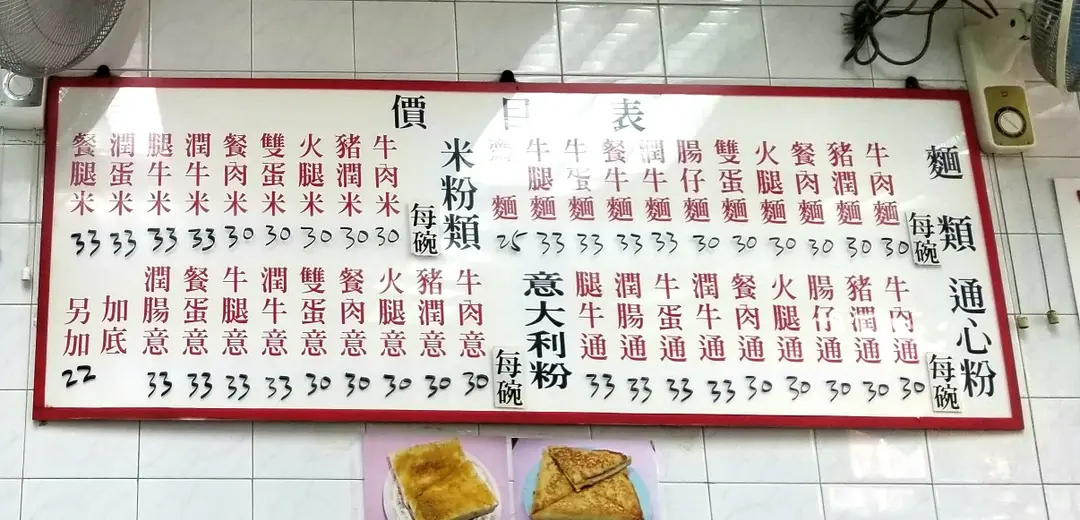 價目表
麵類
每碗
牛肉麵 30
豬潤麵 30
餐肉麵 30
火腿麵 30
雙蛋麵 30
腸仔麵 30
潤牛麵 33
餐牛麵 33
牛蛋麵 33
牛腿麵 33
麵 25
米粉類
每碗
牛肉米 30
豬潤米 30
火腿米 30
雙蛋米 30
餐肉米 30
潤牛米 33
腿牛米 33
潤蛋米 33
餐腿米 33
通心粉
每碗
牛肉通 30
豬潤通 30
腸仔通 30
火腿通 30
餐肉通 30
潤牛通 33
牛蛋通 33
潤腸通 33
腿牛通 33
意大利粉
每碗
牛肉意 30
豬潤意 30
火腿意 30
餐肉意 30
雙蛋意 30
潤牛意 33
牛腿意 33
餐蛋意 33
潤腸意 33
加底
另加 22